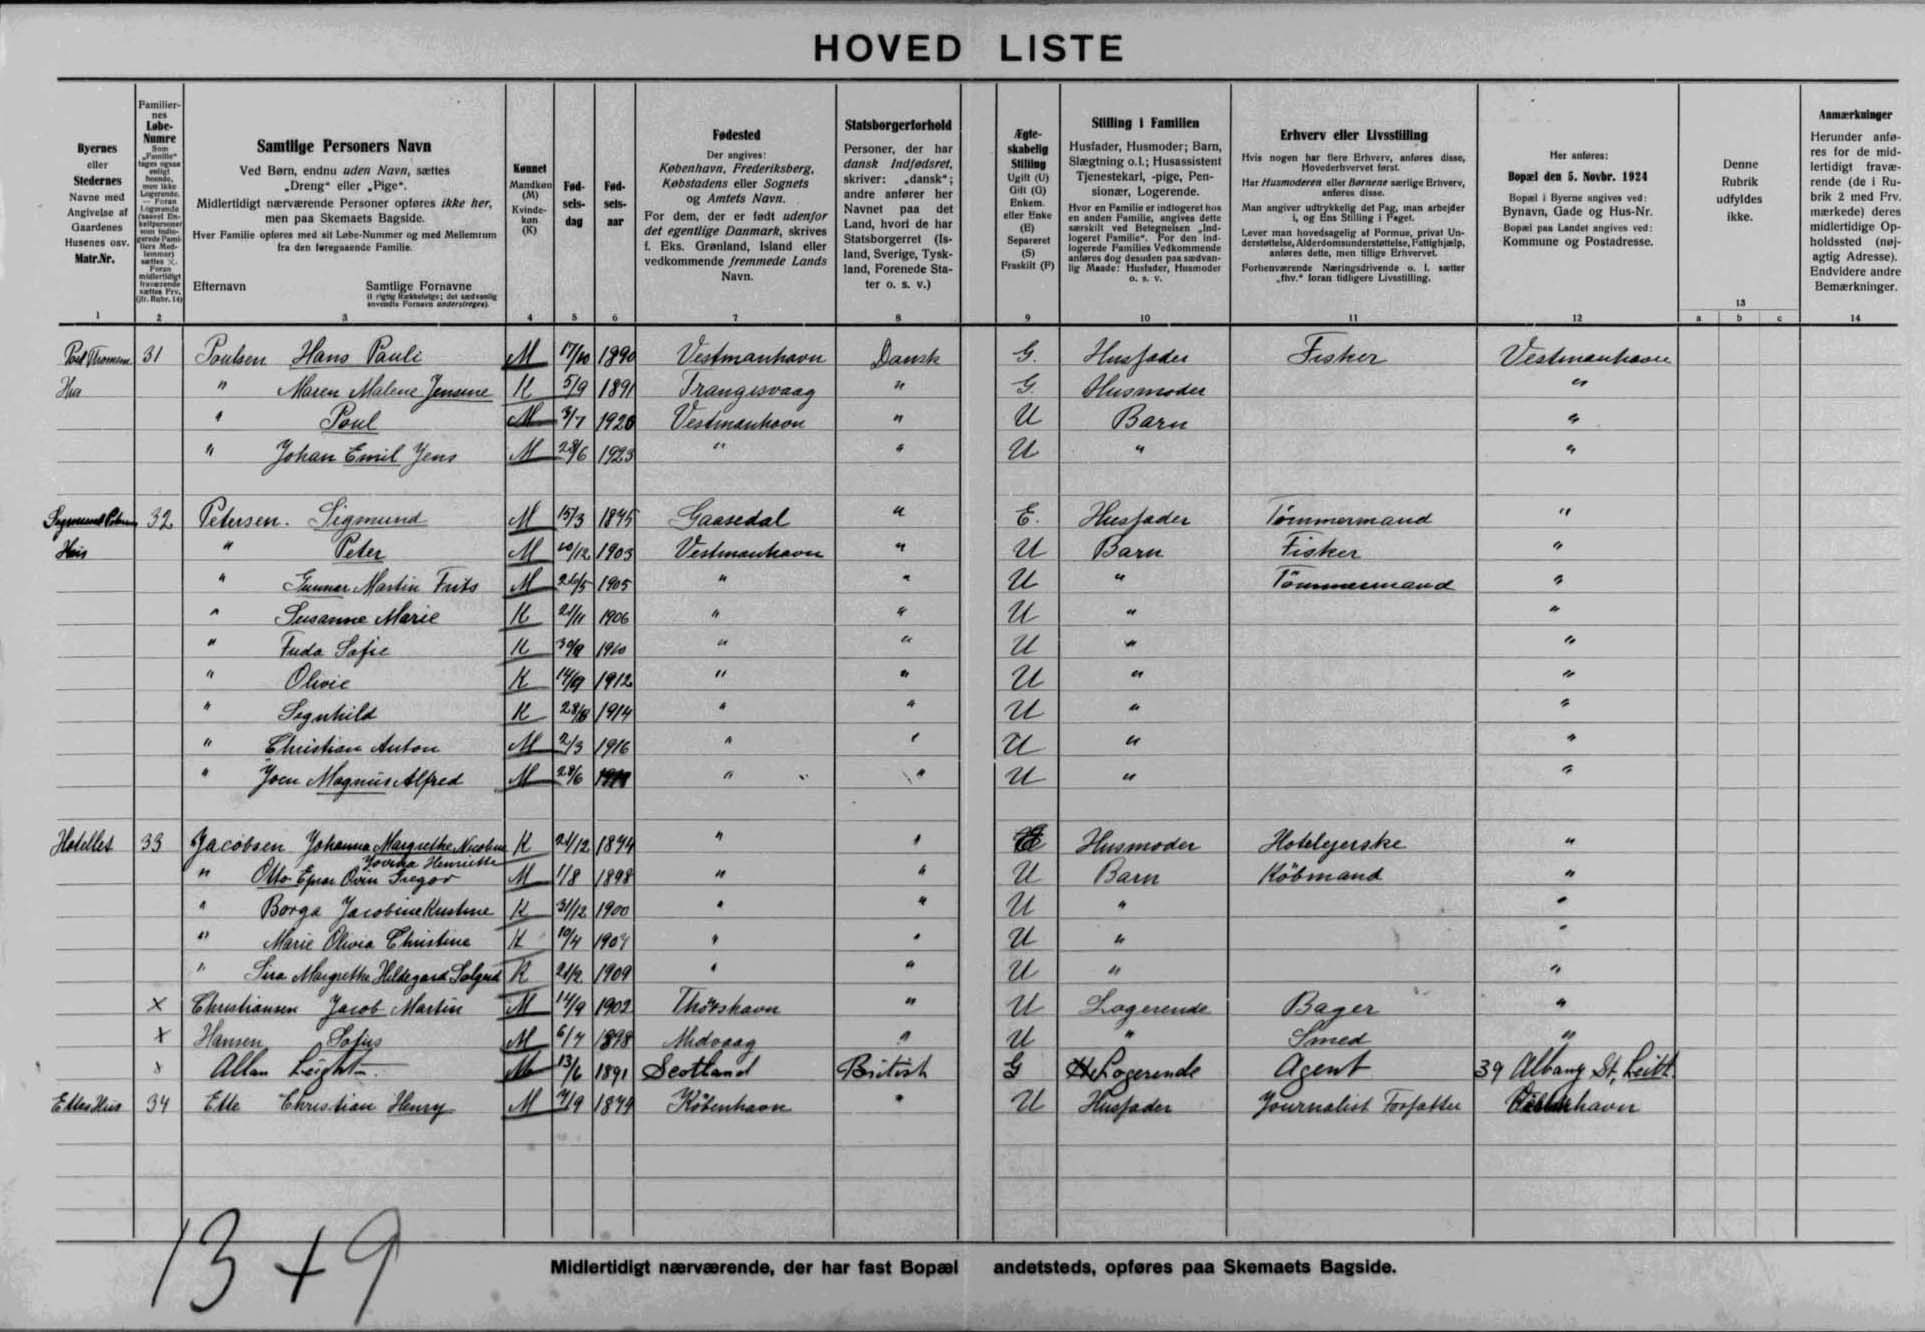 HOVED LISTE
Byernes
eller
Stedernes
Navne med
Angivelse af
Gaardenes
Husenes osv.
Matr.Nr.
Familier-
nes
Løbe-
Numre
Samtlige Personers Navn
Ved Børn, endnu uden Navn, sættes
„Dreng“ eller „Pige“.
Midlertidigt nærværende Personer opføres ikke her,
men paa Skemaets Bagside.
Hver Familie opføres med sit Løbe-Nummer og med Mellemrum
fra den føregaaende Familie.
Efternavn Samtlige Fornavne
(i rigtig Rækkefølge; det sædvanlig
anvendte Fornavn understreges).
Kønnet
Mandkøn
(M)
Kvinde-
køn
(K)
Fød-
sels-
dag
Fød-
sels-
aar
Fødested
Der angives:
København, Frederiksberg,
Købstadens eller Sognets
og Amtets Navn.
For dem, der er født udenfor
det egentlige Danmark, skrives
f. Eks. Grønland, Island eller
vedkommende fremmede Lands
Navn.
Statsborgerforhold
Personer, der har
dansk Indfødsret,
skriver: „dansk“;
andre anfører her
Navnet paa det
Land, hvori de har
Statsborgerret (Is-
land, Sverige, Tysk-
land, Forenede Sta-
ter o. s. v.)
Ægte-
skabelig
Stilling
Ugift (U)
Gift (G)
Enkem.
eller Enke
(E)
Separeret
(S)
Fraskilt (F)
Stilling i Familien
Husfader, Husmoder; Barn,
Slægtning o.l.; Husassistent
Tjenestekarl, -pige, Pen-
sionær, Logerende.
Hvor en Familie er indlogeret hos
en anden Familie, angives dette
særskilt ved Betegnelsen „Ind-
logeret Familie“. For den ind-
logerede Families Vedkommende
anføres dog desuden paa sædvan-
lig Maade: Husfader, Husmoder
o. s. v.
Erhverv eller Livsstilling
Hvis nogen har flere Erhverv, anføres disse,
Hovederhvervet først.
Har Husmoderen eller Børnene særlige Erhverv,
anføres disse.
Man angiver udtrykkelig det Fag, man arbejder
i, og Ens Stilling i Faget.
Lever man hovedsagelig af Formue, privat Un-
derstøttelse, Alderdomsunderstøttelse, Fattighjælp,
anføres dette, men tillige Erhvervet.
Forhenværende Næringsdrivende o. l. sætter
„fhv.“ foran tidligere Livsstilling.
Her anføres:
Bopæl den 5. Novbr. 1924
Bopæl i Byerne angives ved:
Bynavn, Gade og Hus-Nr.
Bopæl paa Landet angives ved:
Kommune og Postadresse.
Denne
Rubrik
udfyldes
ikke.
Anmærkninger
Herunder anfø-
res for de mid-
lertidigt fravæ-
rende (de i Ru-
brik 2 med Frv.
mærkede) deres
midlertidige Op-
holdssted (nøj-
agtig Adresse).
Endvidere andre
Bemærkninger.
1 2 3 4 5 6 7 8 9 10 11 12 13 a b c 14
31 Poulsen Hans Pauli M 17/10 1890 Vestmanhavn Dansk G. Husfader Fisker Vestmanhavn
" Maren Malene Jensine K 5/9 1891 Trangisvaag " G. Husmoder "
" Poul M 3/7 1920 Vestmanhavn " U Barn "
" Johan Emil Jens M 28/6 1923 " " U " "
32 Petersen. Sigmund M 15/3 1875 Gaasedal " E. Husfader Tømmermand "
Hus " Peter M 10/12 1903 Vestmanhavn " U Barn Fisker "
" Gunnar Martin Frits M 26/5 1905 " " U " Tömmermand "
" Susanne Marie K 21/11 1906 " " U " "
" Sofie K 1910 " " U " "
" Olivie K 14/9 1912 " " U " "
" Signhild K 28/8 1914 " " U " "
" Christian Anton M 2/3 1916 " " U " "
" Joen Magnus Alfred M 28/6 " " U " "
Hotellet 33 Jacobsen Johanna Margrethe Nicoline K 21/12 1874 " " Husmoder Hotelejerske "
Henriette
" Otto Gregor M 1/8 1898 " " U Barn Købmand "
" Borga Jacobine Kristine K 31/12 1900 " " U " "
" Marie Olivia Christine K 10/4 1907 " " U " "
" Margrethe Hildegard Solgerd K 21/2 1909 " " U " "
x Christiansen Jacob Martin M 14/9 1902 Thórshavn " U Logerende Bager "
x Hansen Sofus M 6/7 1898 Midvaag " U " Smed "
x Allan Leight M 13/6 1891 Scotland British G Logerende Agent 39 Albany St, Leith.
Ettes Hus 34 Ette Christian Henry M 1879 København " U Husfader Journalist Forfatter
13 + 9
Midlertidigt nærværende, der har fast Bopæl andetsteds, opføres paa Skemaets Bagside.